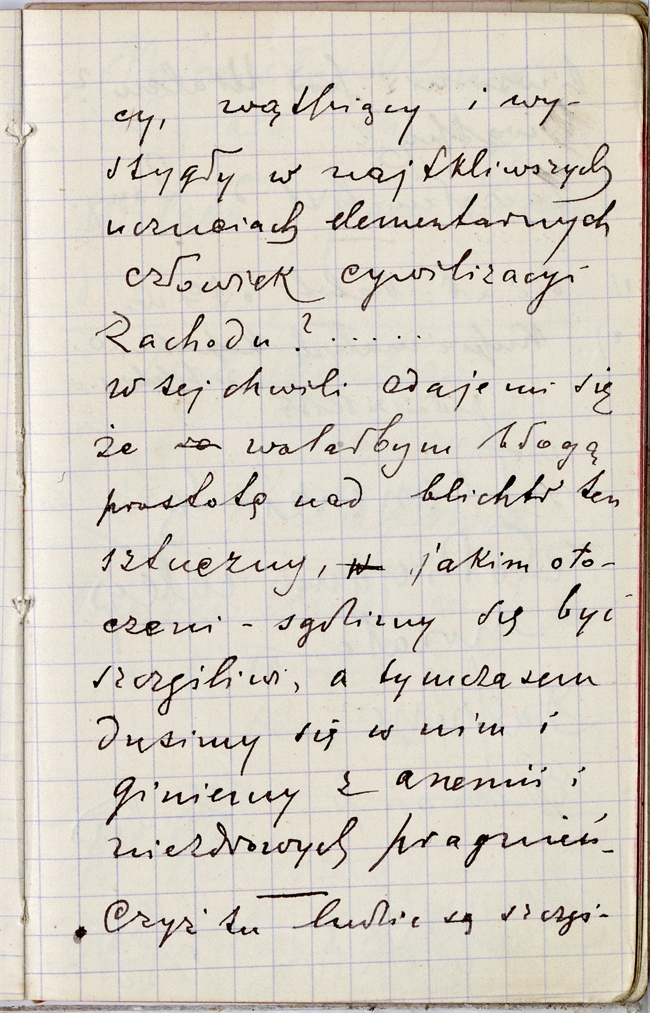 cy, wątpiący i wy-
stygły w najtkliwszych
uczuciach elementarnych
człowiek cywilizacyi
Zachodu?.....
W tej chwili zdaje mi się
że wolałbym błogą
prostotę nad blichtr ten
sztuczny, jakim oto-
czeni - sądzimy się być
szczęśliwi, a tymczasem
dusimy się w nim i
giniemy z anemii i
niezdrowych pragnień.
Czyż tu ludzie są szczę-